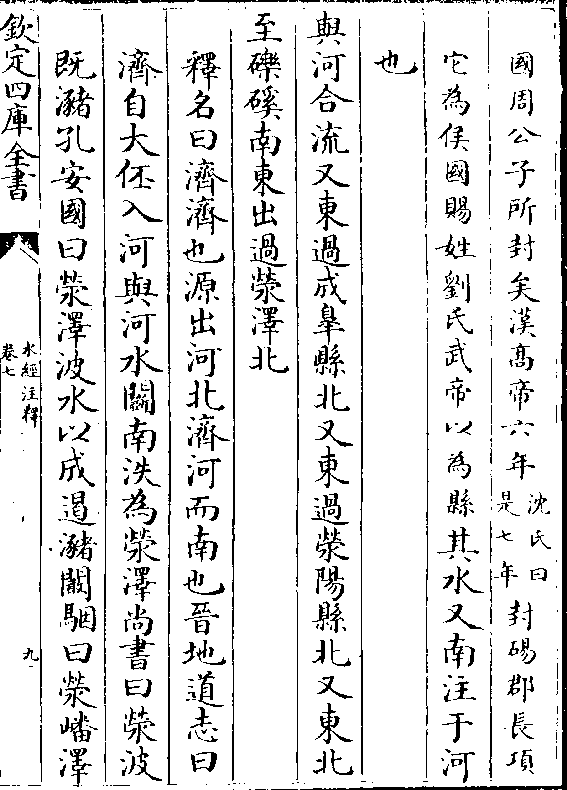 國周公子所封矣漢高帝六年沈氏曰是七年封碭郡長項
它為侯國賜姓劉氏武帝以為縣其水又南注于河
也
與河合流又東過成臯縣北又東過滎陽縣北又東北
至礫磎南東出過滎澤北
釋名曰濟濟也源出河北濟河而南也晉地道志曰
濟自大伾入河與河水鬭南泆為滎澤尚書曰滎波
既瀦孔安國曰滎澤波水以成遏瀦闞駰曰滎嶓澤
欽定四庫全書
水經注釋
卷七
九